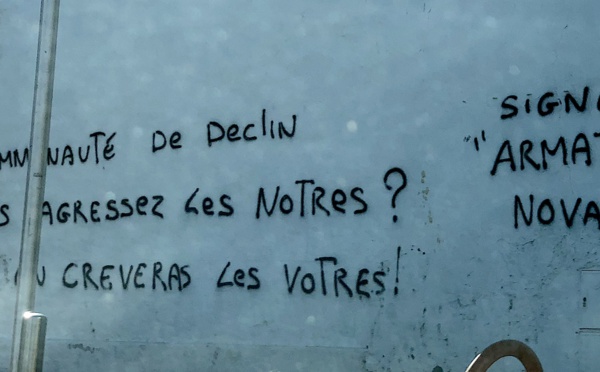 MM NAUTÉ De DecLIN
S AGRESSEZ Les NOTRes ?
CREVERAS Les VOTRES !
SIGN
"ARMAT
NOVA